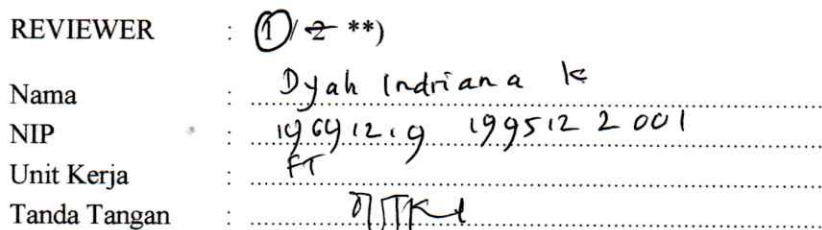 REVIEWER : 1 / 2 **)
Nama : Dyah Indriana K
NIP : 19691219 199512 2 001
Unit Kerja : FT
Tanda Tangan :